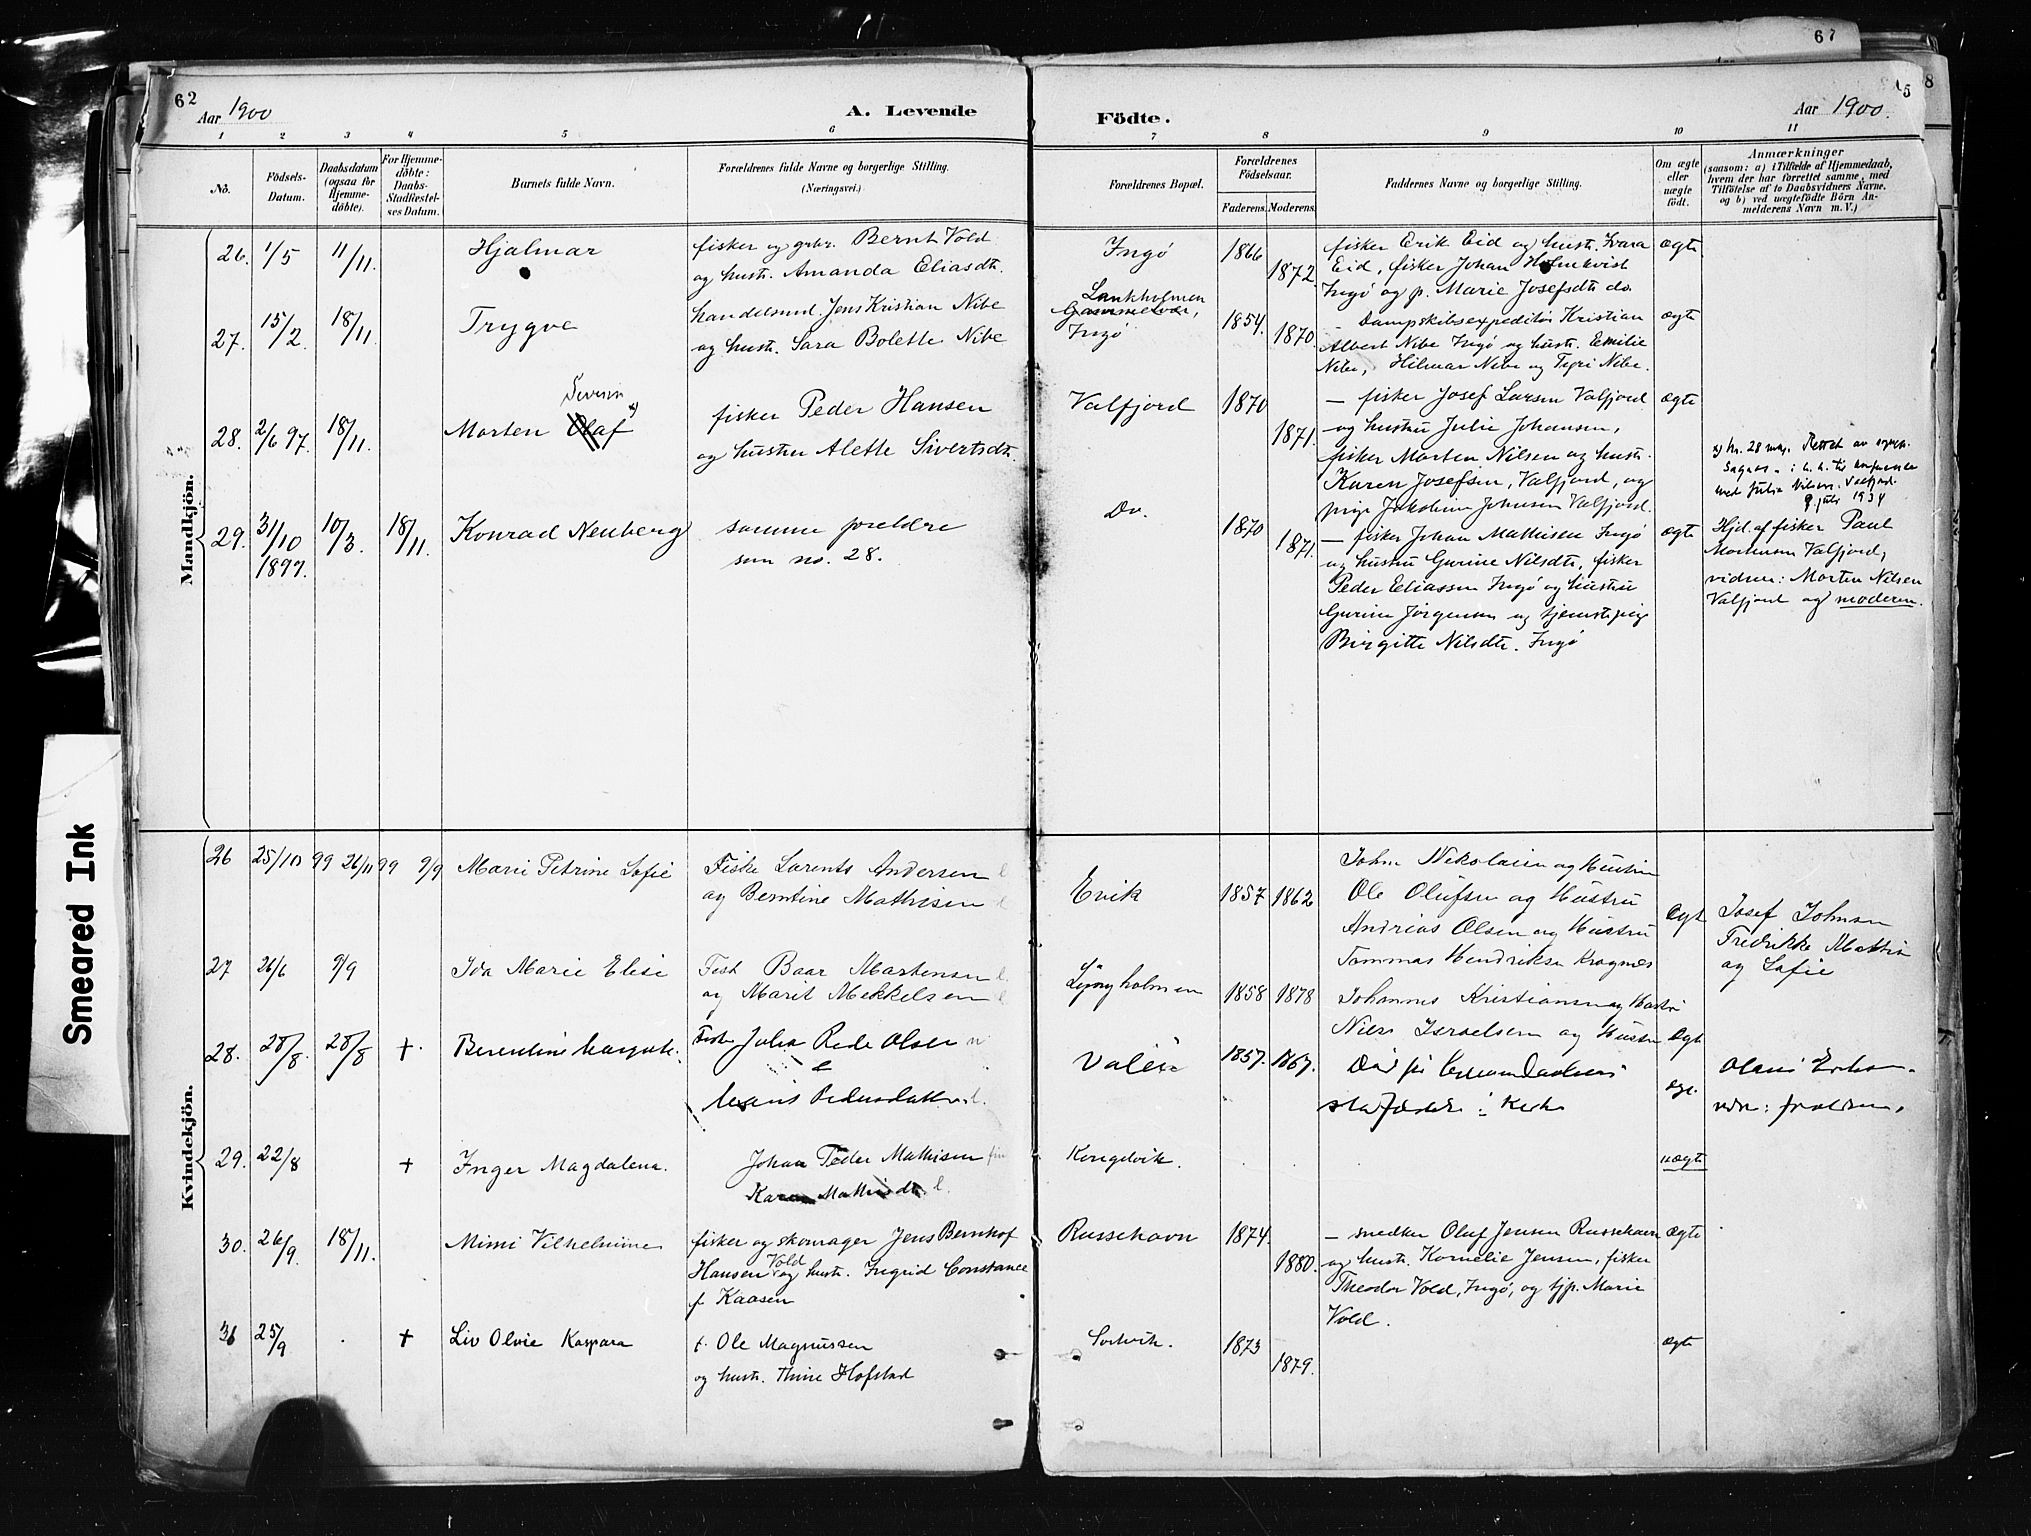 67
62
Aar 1900
A. Levende
Födte.
Aar 1900.
5
8
1
2
3
4
5
6
7
8
9
10
11
No.
Födsels-
Datum.
Daabsdatum
(ogsaa for
Hjemme-
döbte).
For Hjemme-
döbte:
Daabs-
Stadfæstel-
ses Datum.
Barnets fulde Navn.
Forældrenes fulde Navne og borgerlige Stilling.
(Næringsvei.)
Forældrenes Bopæl.
Forældrenes
Födselsaar.
Faderens.
Moderens.
Faddernes Navne og borgerlige Stilling.
Om ægte
eller
uægte
födt.
Anmærkninger
(saasom: a) i Tilfælde af Hjemmedaab,
hvem der har forrettet samme, med
Tilföielse af to Daabsvidners Navne.
og b) ved uægtefödte Börn An-
melderens Navn m. V.)
Mandkjön.
26. 1/5 11/11. Hjalmar
fisker og gbr. Bernt Vold
og hustr. Amanda Eliasdtr.
Ingø 1866 1872
fisker Erik Eid og hustr. Ivara
Eid, fisker Johan Holmkvist
Ingø og p. Marie Josefsdtr do.
ægte
27. 15/2. 18/11. Trygve
handelsmd. Jens Kristian Nibe
og hustr. Sara Bolette Nibe
Lankholmen
Gammelvær,
Ingø
1854. 1870.
– Dampskibsexpeditør Kristian
Albert Nibe Ingø og hustr. Emilie
Nibe, Hilmar Nibe og Tyri Nibe.
ægte
28. 2/6 97. 18/11. Morten Olaf
Severin x)
fisker Peder Hansen
og hustru Alette Sivertsdtr.
Valfjord 1870 1871.
– fisker Josef Larsen Valfjord
og hustru Julie Johansen,
fisker Morten Nilsen og hustr.
Karen Josefsen, Valfjord, og
pige Jakobine Johnsen Valfjord.
ægte
x) Nr. 28 Rettet av
med Julia Nilsen. Valfjord.
9 juli 1934
29. 31/10 1897. 10/3. 18/11. Konrad Neuberg
samme foreldre
som no. 28.
Do. 1870 1871.
– fisker Johan Mathisen Ingø
og hustru Gurine Nilsdtr, fisker
Peder Eliassen Ingø og hustru
Gurine Jørgensen og tjenestepige
Birgitte Nilsdtr. Ingø
ægte
Hjd. af fisker Paul
Mortensen Valfjord,
vidner: Morten Nilsen
Valfjord og moderen.
Kvindekjön.
26 25/10 99 26/11 99 9/9 Marie Petrine Sofie
Fiske Lorents Andersen
og Berntine Mathisen
Evik 1857 1862
John Nikolaisen og Hustru
Ole Olufsen og Hustru
Andrias Olsen og Hustru
Tommas Hendriksen Kragnes
Ægt
Josef Johnsen
Fredrikke Mathis
og Sofie
27 26/6 9/9 Ida Marie Elise
Fisk Baar Martensen
og Marit Mekkelsen
Ljøngholmen 1858 1878
Johannes Kristiansen og Hustru
Niels Israelsen og Hustru
Ægt
28. 28/8. 28/8 +. Berentine Margrete.
Fisk Johan Peder Olsen
&
Maris Pedersdatter.
1857. 1867.
stadfæstede i Kirke
ægt.
29. 22/8 + Inger Magdalena.
Johan Peder Mathisen
Karen Mathisdtr.
Kongelvik.
uægte
30. 26/9. 18/11. Mimi Vilhelmine
fisker og skomager Jens Bernhof
Hansen Vold og hustr. Ingrid Constance
f. Kaasen
Russehavn 1874. 1880.
– snedker Oluf Jensen Russehavn
og hustr. Kornelie Jensen, fisker
Theodor Vold, Ingø, og tjp. Marie
Vold.
ægte
31 25/9 . + Liv Olvie Kaspara
f. Ole Magnussen
og hustr. Thine Hofstad
Sorvik. 1873 1879.
ægte
Smeared Ink